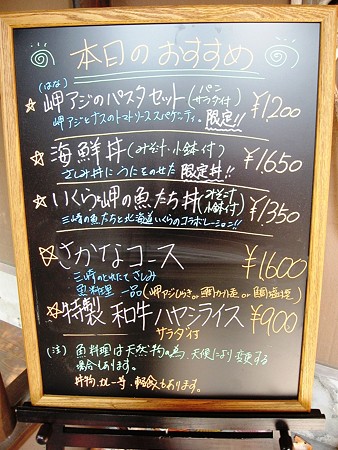 本日のおすすめ
(はな)
☆岬アジのパスタセット(パン サラダ付) ¥1,200
岬アジとナスのトマトソーススパゲティ。限定!!
☆海鮮丼(みそ汁・小鉢付) ¥1,650
さしみ丼にうにをのせた限定丼!!
☆いくらと岬の魚たち丼(みそ汁 小鉢付) ¥1,350
三崎の魚たちと北海道いくらのコラボレーション!!
☆さかなコース ¥1600
三崎のとれたて さしみ
魚料理 一品(岬アジひらき or カルト煮 or 鯛塩焼)
☆特製 和牛ハヤシライス ¥900
サラダ付
(注) 魚料理は天然物の為、天候により変更する
場合もあります。
丼物、カレー等、軽食もあります。